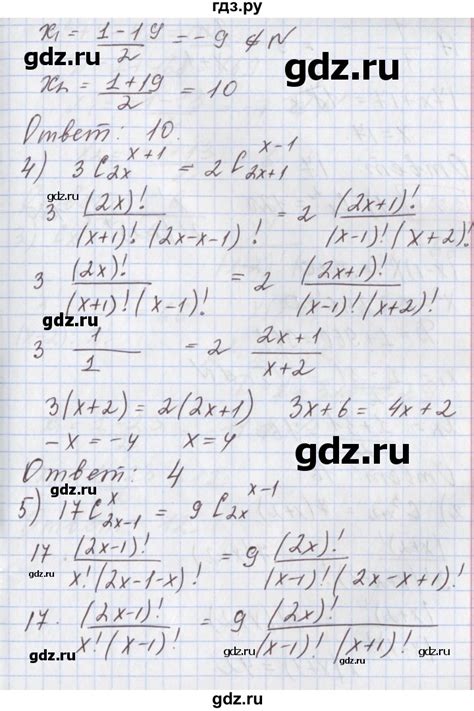 гдз.ру
x₁ = (1-19)/2 = -9 ∉ N
x₂ = (1+19)/2 = 10
gdz.ru
Ответ: 10.
gdz.ru
4) 3 C_{2x}^{x+1} = 2 C_{2x+1}^{x-1}
gdz.ru
3 (2x)!/((x+1)! (2x-x-1)!) = 2 (2x+1)!/((x-1)! (x+2)!)
gdz.ru
3 (2x)!/((x+1)! (x-1)!) = 2 (2x+1)!/((x-1)! (x+2)!)
gdz.ru
3 1/1 = 2 (2x+1)/(x+2)
gdz.ru
3(x+2) = 2(2x+1) 3x+6 = 4x+2
gdz.ru
-x = -4 x = 4
Ответ: 4
gdz.ru
5) 17 C_{2x-1}^{x} = 9 C_{2x}^{x-1}
gdz.ru
17 · (2x-1)!/(x! (2x-1-x)!) = 9 (2x)!/((x-1)! (2x-x+1)!)
gdz.ru
17 · (2x-1)!/(x! (x-1)!) = 9 (2x)!/((x-1)! (x+1)!)
gdz.ru gdz.ru
gdz.ru